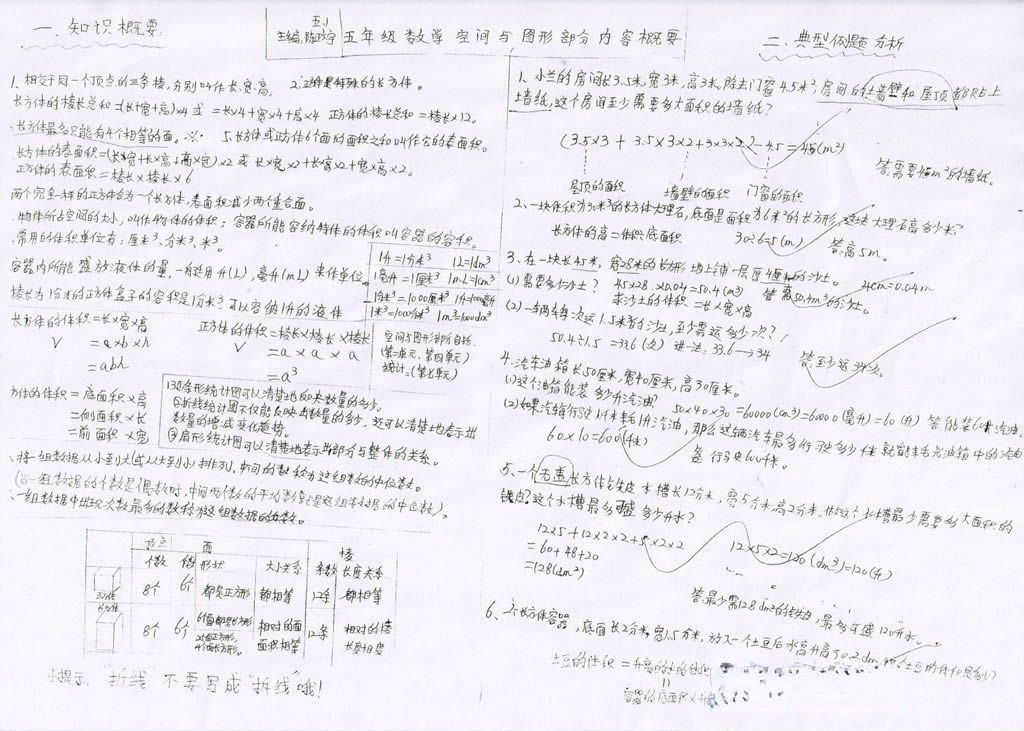 五.1
主编:陈
五年级数学 空间与图形部分内容概要
一、知识概要:
1、相交于同一个顶点的三条棱,分别叫作长、宽、高。 2、正方体是特殊的长方体。
长方体的棱长总和=(长+宽+高)×4 或 =长×4+宽×4+高×4 正方体的棱长总和=棱长×12。
长方体最多只能有4个相等的面。※ 5.长方体或正方体6个面的面积之和叫作它的表面积。
长方体的表面积=(长×宽+长×高+高×宽)×2 或 长×宽×2+长×高×2+宽×高×2。
正方体的表面积=棱长×棱长×6
两个完全一样的正方体合为一个长方体,表面积减少两个重合面。
物体所占空间的大小,叫作物体的体积;容器所能容纳物体的体积叫容器的容积。
常用的体积单位有:厘米³、分米³、米³。
容器内所能盛放液体的量,一般运用升(L),毫升(mL)来作单位。
棱长为1分米的正方体盒子的容积是1分米³,可以容纳1升的液体
1升=1分米³ 1L=1dm³
1毫升=1厘米³ 1mL=1cm³
1分米³=1000厘米³ 1升=1000毫升
1米³=1000分米³ 1m³=1000dm³
长方体的体积=长×宽×高
V =a×b×h
=abh
正方体的体积=棱长×棱长×棱长
V =a×a×a
=a³
空间与图形部分包括:
(第二单元、第四单元)
统计:(第七单元)
方体的体积=底面积×高
=侧面积×长
=前面积×宽
13①条形统计图可以清楚地反映数量的多少。
②折线统计图不仅能反映出数量的多少,还可以清楚地表示出
数量的增减变化趋势。
③扇形统计图可以清楚地表示出部分与整体的关系。
将一组数据从小到大(或从大到小)排列,中间的数称为这组数的中位数。
(当一组数据的个数是偶数时,中间两个数的平均数算是这组数据的中位数)。
一组数据中出现次数最多的数称为这组数据的众数。
顶点 面 棱
个数 个数 形状 大小关系 条数 长度关系
正方体 8个 6个 都是正方形 都相等 12条 都相等
长方体 8个 6个 6个面都是长方形 2个面正方形,4个面长方形。 相对的面面积相等 12条 相对的棱长相等
小提示:“折线”不要写成“拆线”哦!
二、典型例题分析
1、小兰的房间长3.5米,宽3米,高3米,除去门窗4.5米²,房间的墙壁和屋顶都贴上
墙纸,这个房间至少需要多大面积的墙纸?
(3.5×3+3.5×3×2+3×3×2)-4.5=45(m²)
屋顶的面积 墙壁的面积 门窗的面积
答:需要45m²的墙纸。
2、一块体积为30米³的长方体大理石,底面是面积为6米²的长方形,这块大理石高多少米?
长方体的高=体积÷底面积 30÷6=5(m) 答:高5m。
3、在一块长45米,宽28米的长方形地上铺一层厚4厘米的沙土。
(1)需要多少沙土? 45×28×0.04=50.4(m³) 答:需50.4m³的沙土。 4cm=0.04m
求沙土的体积=长×宽×高
(2)一辆车每次运1.5米³的沙土,至少需运多少次?
50.4÷1.5=33.6(次) 进一法:33.6→34 答:至少运34次。
4、汽车油箱长50厘米,宽40厘米,高30厘米。
(1)这个油箱能装多少升汽油? 50×40×30=60000(cm³)=60000(毫升)=60(升) 答:能装60升汽油。
(2)如果汽车每行驶10千米耗1升汽油,那么这辆汽车最多行驶多少千米就能耗去油箱中的汽油
60×10=600(千米) 答:行驶600千米。
5、一个无盖长方体铁皮水槽长12分米,宽5分米,高2分米,做这个水槽最少需要多大面积的
铁皮?这个水槽最多可盛多少升水?
12×5+12×2×2+5×2×2
=60+48+20
=128(dm²)
12×5×2=120(dm³)=120(升)
答:最少需128dm²的铁皮,最多可盛120升水。
6、一个长方体容器,底面长2分米,宽1.5分米,放入一个土豆后水高升高了0.2dm,这个土豆的体积是多少?
土豆的体积=升高的水的体积
容器的底面积×升高